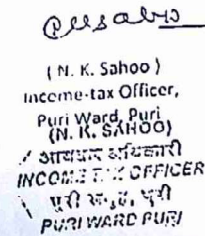 ( N. K. Sahoo )
Income-tax Officer,
Puri Ward, Puri
(N. K. SAHOO)
आयकर अधिकारी
INCOME TAX OFFICER
पुरी
PURI WARD PURI